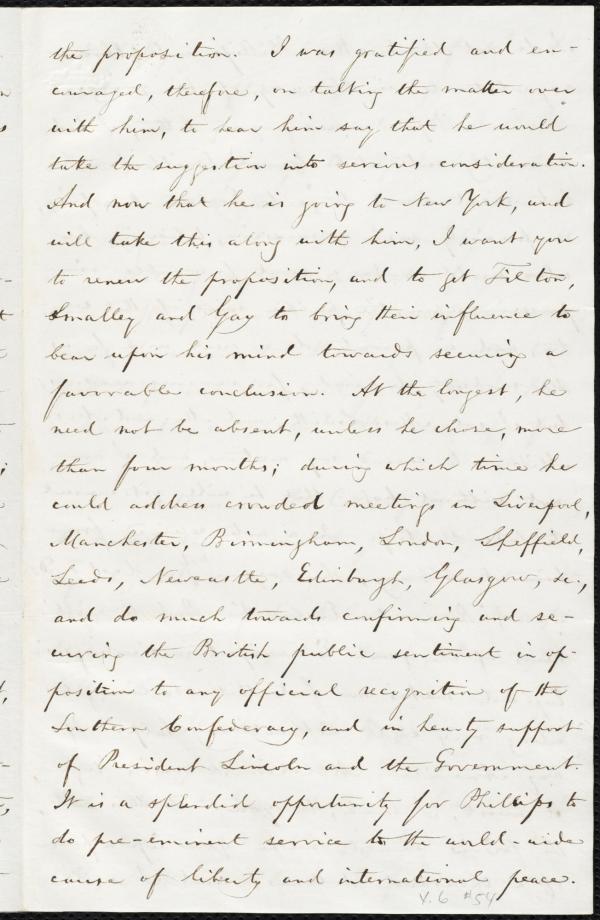 the proposition. I was gratified and en-
couraged, therefore, on talking the matter over
with him, to hear him say that he would
take the suggestion into serious consideration.
And now that he is going to New York, and
will take this along with him, I want you
to renew the proposition, and to get Tilton,
Smalley and Gay to bring their influence to
bear upon his mind towards securing a
favorable conclusion. At the longest, he
need not be absent, unless he chose, more
than four months; during which time he
could address crowded meetings in Liverpool,
Manchester, Birmingham, London, Sheffield,
Leeds, Newcastle, Edinburgh, Glasgow, &c.,
and do much towards confirming and se-
curing the British public sentiment in op-
position to any official recognition of the
Southern Confederacy, and in hearty support
of President Lincoln and the Government.
It is a splendid opportunity for Phillips to
do pre-eminent service to the world-wide
cause of liberty and international peace.
v. 6 #54